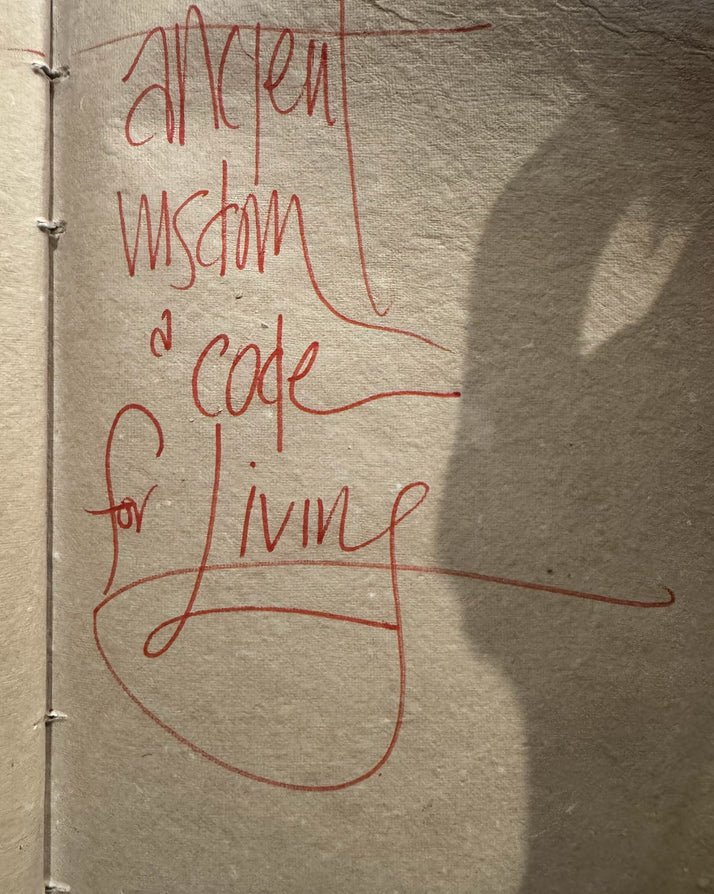 ancient
wisdom
a code
for Living